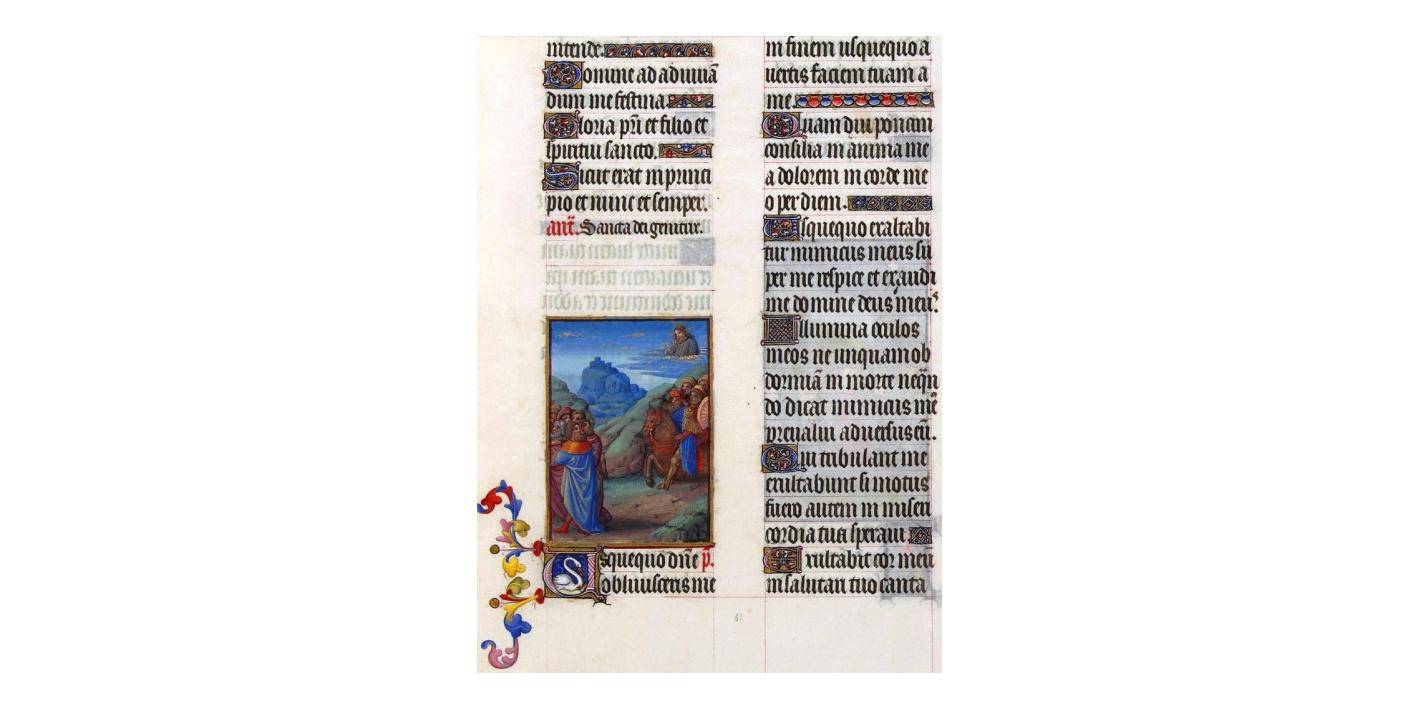 intende.
Domine ad adiuuā
dum me festina.
Gloria pr̄i et filio et
spiritui sancto.
Sicut erat in princi
pio et nunc et semper.
ant̄. Sancta dei genitrix.
Usquequo dn̄e p̄.
obliuisceris me
in finem usquequo a
uertis faciem tuam a
me.
Quam diu ponam
consilia in anima me
a dolorem in corde me
o per diem.
Usquequo exaltabi
tur inimicus meus su
per me respice et exaudi
me domine deus meus.
Illumina oculos
meos ne unquam ob
dormiā in morte neqn̄
do dicat inimicus me᷒
preualui aduersus eū.
Qui tribulant me
exultabunt si motus
fuero autem in miseri
cordia tua speraui.
Exultabit cor meū
in salutari tuo canta
61